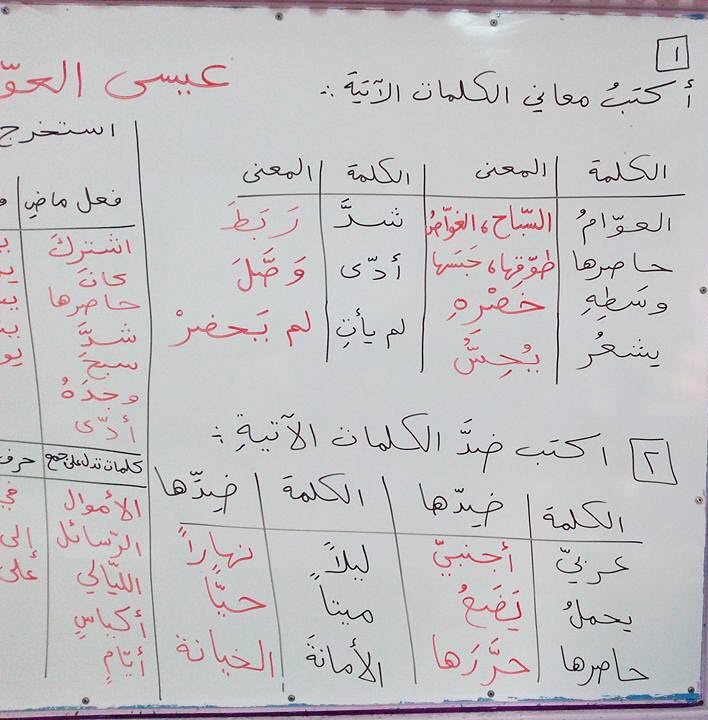 عيسى العوّ
١
أكتبُ معاني الكلمات الآتية :
الكلمة المعنى الكلمة المعنى
العوّامُ السّباح، الغوّاصُ شدَّ رَبَطَ
حاصرها طوّقها، حَبَسها أدّى وَصَّلَ
وسَطِهِ خَصْرِهِ لم يأتِ لم يَحضرْ
يشعُر يُحِسُّ
٢
اكتب ضدَّ الكلمات الآتيةِ :
الكلمة ضِدّها الكلمة ضِدّها
عربيّ أجنبيّ ليلاً نهاراً
يحملُ يَضَعُ ميتا حيّاً
حاصرها حرَّرَها الأمانةَ الخيانة
استخرج
فعل ماضٍ
اشتركَ
كانَ
حاصرها
شدَّ
سبحَ
وجدَهُ
أدّى
كلمات تدل على جمع حرف
الأموال في
الرّسائل إلى
اللّيالي على
أكياسٍ
أيّامٍ